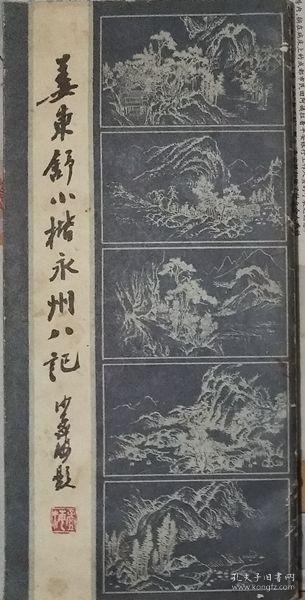 姜東舒小楷永州八記
沙孟海題
孔夫子旧书网
www.kongfz.com